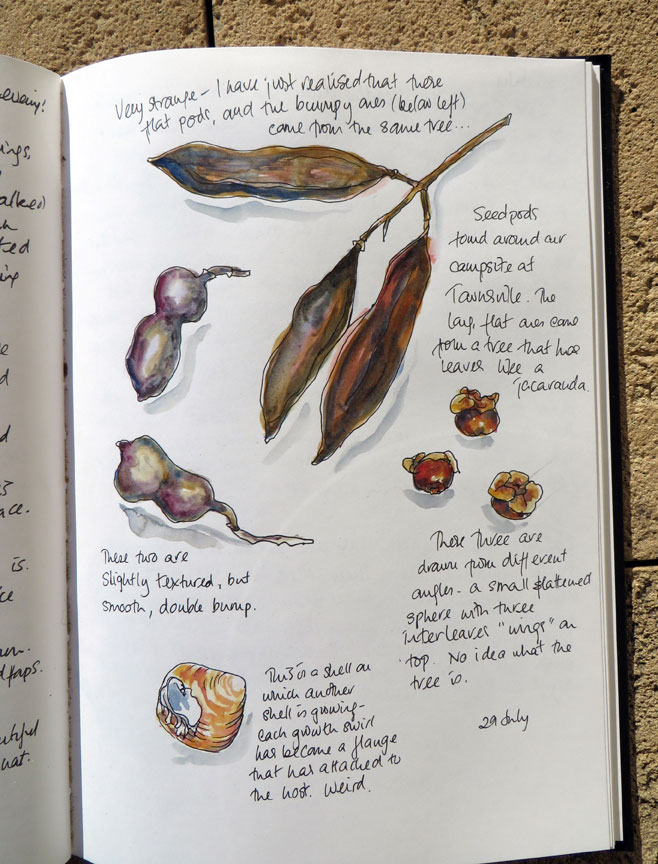 Very strange - I have just realised that these
flat pods, and the bumpy ones (below left)
came from the same tree...
Seedpods
found around our
campsite at
Townsville. The
long, flat ones came
from a tree that has
leaves like a
jacaranda.
These two are
slightly textured, but
smooth, double bump.
These three are
drawn from different
angles - a small flattened
sphere with three
interleaved "wings" on
top. No idea what the
tree is.
This is a shell on
which another
shell is growing -
each growth swirl
has become a flange
that has attached to
the host. Weird.
29 July
is.